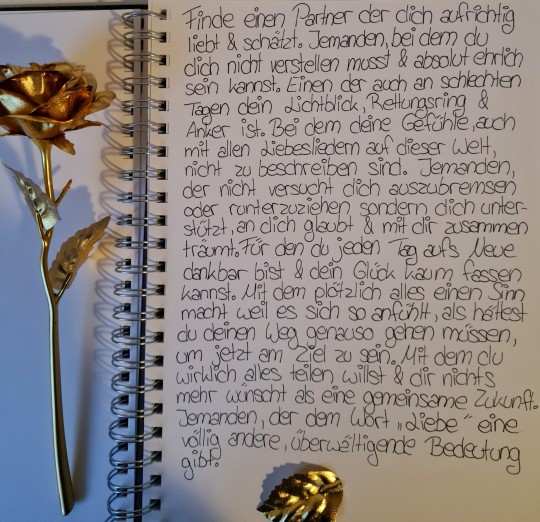 Finde einen Partner der dich aufrichtig
liebt & schätzt. Jemanden, bei dem du
dich nicht verstellen musst & absolut ehrlich
sein kannst. Einen der auch an schlechten
Tagen dein Lichtblick, Rettungsring &
Anker ist. Bei dem deine Gefühle, auch
mit allen Liebesliedern auf dieser Welt,
nicht zu beschreiben sind. Jemanden,
der nicht versucht dich auszubremsen
oder runterzuziehen sondern dich unter-
stützt, an dich glaubt & mit dir zusammen
träumt. Für den du jeden Tag aufs Neue
dankbar bist & dein Glück kaum fassen
kannst. Mit dem plötzlich alles einen Sinn
macht weil es sich so anfühlt, als hättest
du deinen Weg genauso gehen müssen,
um jetzt am Ziel zu sein. Mit dem du
wirklich alles teilen willst & dir nichts
mehr wünscht als eine gemeinsame Zukunft.
Jemanden, der dem Wort „Liebe" eine
völlig andere, überwältigende Bedeutung
gibt.